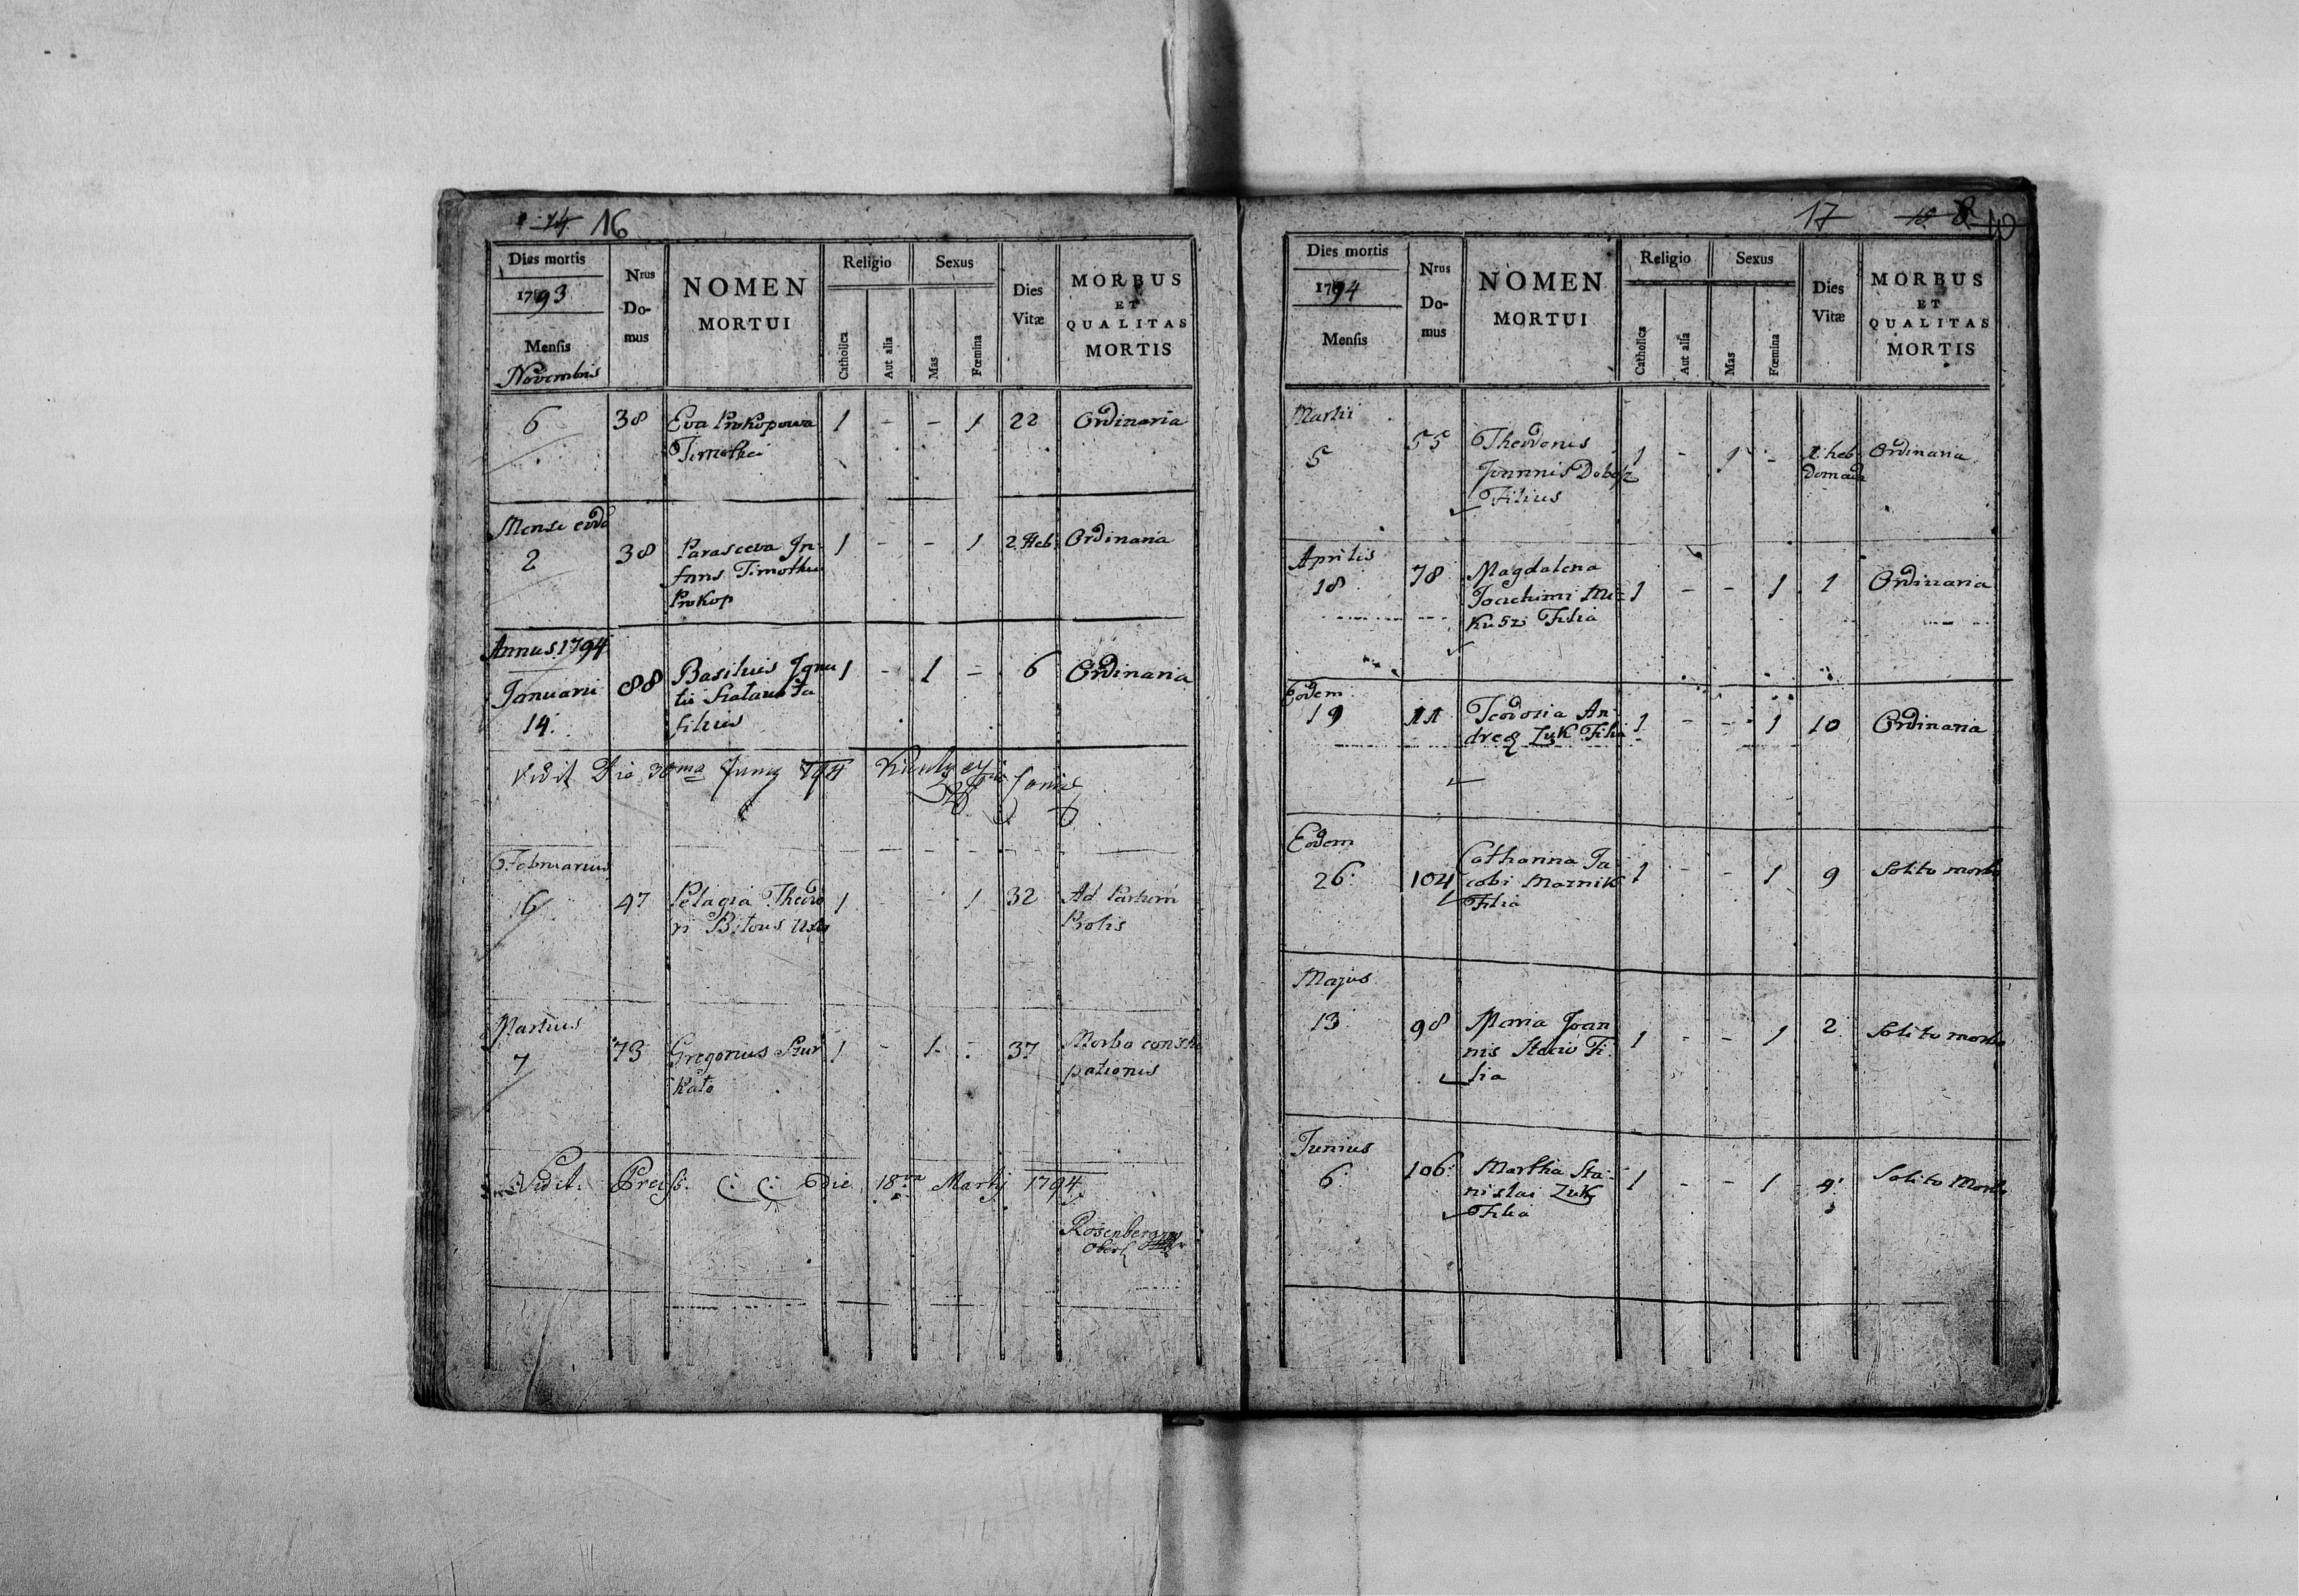 14 16
Dies mortis
1793
Mensis
Novembris
Nrus
Do-
mus
NOMEN
MORTUI
Religio
Catholica
Aut alia
Sexus
Mas
Fœmina
Dies
Vitæ
MORBUS
ET
QUALITAS
MORTIS
6 38 Eva Prokopowa 1 - - 1 22 Ordinaria
Timothei
Mense eodē
2 38 Parasceva In- 1 - - 1 2 Heb. Ordinaria
fans Timothei
Prokop
Annus 1794
Januarii 88 Basilius Igna 1 - 1 - 6 Ordinaria
14. tii
filius
Vidit Die 30ma Juny 794
Februarius
16 47 Pelagia Theodo 1 1 32 Ad Partum
ri Uxor Prolis
Martius
7 73 Gregorius 1 - 1 - 37 Morbo consti
pationis
Vidit. C. C. die 18va Martÿ 1794
Rosenberg
17 10 8
Dies mortis
1794
Mensis
Nrus
Do-
mus
NOMEN
MORTUI
Religio
Catholica
Aut alia
Sexus
Mas
Fœmina
Dies
Vitæ
MORBUS
ET
QUALITAS
MORTIS
Martii
5 55 Theodorus 1 - 1 - 1 heb Ordinaria
Joannis domada
Filius
Aprilis
18 78 Magdalena 1 - - 1 1 Ordinaria
Joachimi Mi-
kusz Filia
Eodem
19 11 Teodosia An- 1 - - 1 10 Ordinaria
dreæ Zuk Filia
Eodem
26. 104 Catharina Ja 1 - - 1 9 Solito morbo
cobi Marnik
Filia
Majus
13 98 Maria Joan 1 - - 1 2 Solito morbo
nis Fi-
lia
Junius
6. 106. Martha Sta- 1 - - 1 4. Solito Morbo
nislai Zuk
Filia